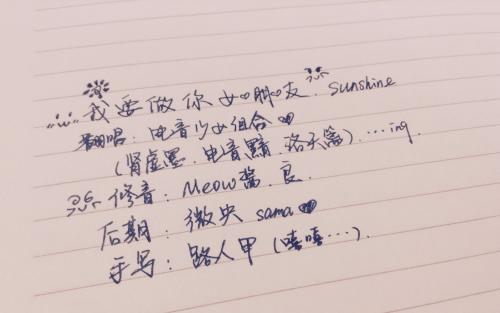 我要做你女朋友. sunshine
翻唱: 电音少女组合
(肾虚墨. 电音黯. 洛天篱)…ing.
修音: Meow酱. 良.
后期: 微央 sama
手写: 路人甲 (嘻嘻…).